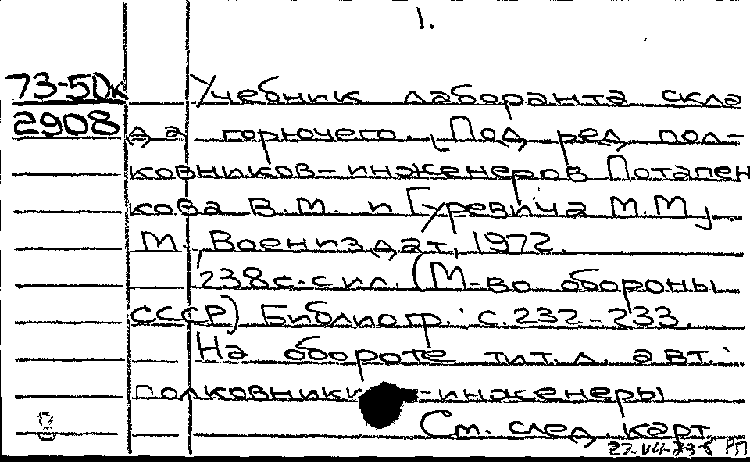 1.
73-50к Учебник лаборанта скла
2908 да горючего. [Под ред. пол-
ковников-инженеров Потапен
кова В.М. и Гуревича М.М.]
М., Воениздат, 1972.
238с. с ил. (М-во обороны
СССР) Библиогр.: с. 232-233.
На обороте тит. л. авт.:
полковники-инженеры
См. след. карт